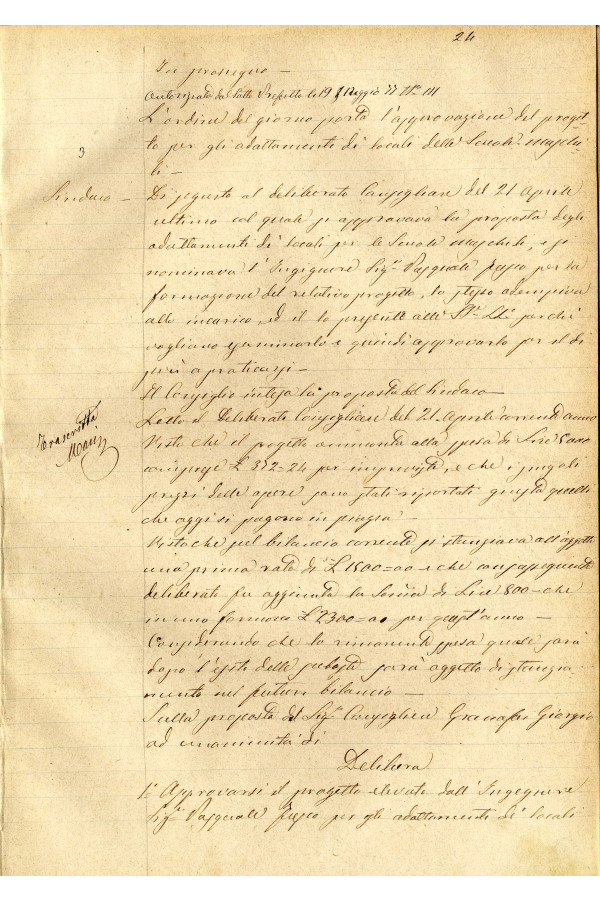 24
In prosieguo —
autorizzata da Sotto Prefetto lì 19 Maggio 77 N° 111
3
L'ordine del giorno porta l'approvazione del proget-
to per gli adattamenti di locali delle Scuole maschi-
li —
Sindaco —
Di seguito al deliberato Consigliare del 21 Aprile
ultimo col quale si approvava la proposta degli
adattamenti di locali per le Scuole maschili, e si
nominava l'Ingegnere Sig.r Pasquale per la
formazione del relativo progetto, lo stesso adempiva
allo incarico, ed il lo presente alle SS. LL. perché
vogliano esaminarlo e quindi approvarlo per il di
più a praticarsi —
Il Consiglio intesa la proposta del Sindaco —
Letto il Deliberato Consigliare del 21 Aprile corrente anno
Trascritta
Visto che il progetto ammonta alla spesa di Lire
comprese £ 372=24 per impreviste, e che i singoli
prezzi delle opere sono stati riportati giusta quelli
che oggi si pagano in piazza
Visto che nel bilancio corrente si stanziava all'oggetto
una prima rata di £ 1500=00 e che con susseguente
deliberato fu aggiunta la somma di Lire 800 – che
in uno formano £ 2300=00 per quest'anno —
Considerando che la rimanente spesa quale sarà
dopo l'esito delle subaste sarà oggetto di stanzia-
mento nel futuro bilancio —
Sulla proposta del Sig.r Consigliere Granafei Giorgio
ad unanimità di
Delibera
1° Approvarsi il progetto elevato dall'Ingegnere
Sig.r Pasquale per gli adattamenti di locali